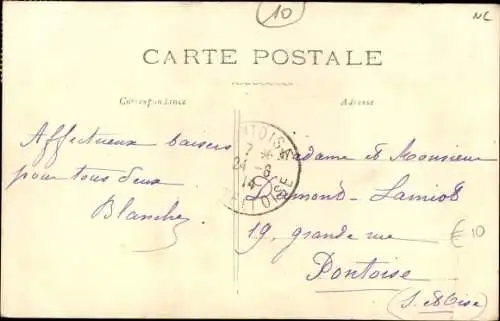 10
NL
CARTE POSTALE
Correspondance
Adresse
Affectueux baisers
pour tous deux
Blanche
TOISE
7 *
24 - 8
14
SEINE-ET-OISE
Madame et Monsieur
19, grande rue
Pontoise
(S. et Oise)
€10